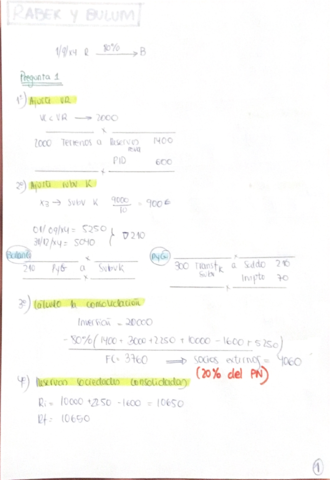 RABER Y BULUM
1/9/x4 R 80% → B
Pregunta 1
1º) Ajuste VR
VC < VR → 2000
x
2000 Terrenos a Reservas 1400
PID 600
x
2º) Ajuste subv K
x3 → Subv K 9000/10 = 900€
01/09/x4 = 5250
31/12/x4 = 5040 } ∇210
Balance
x
210 PyG a Subv K
x
PyG
x
300 Transf K subv a Saldo 210
Impto 70
x
3º) Cálculo de consolidación
Inversión = 20000
- 80% (1400 + 3000 + 2250 + 10000 - 1600 + 5250)
FC = 3760 ⇒ socios externos = 4060
(20% del PN)
4º) Reservas sociedades consolidadas
Ri = 10000 + 2250 - 1600 = 10650
Rf = 10650
1